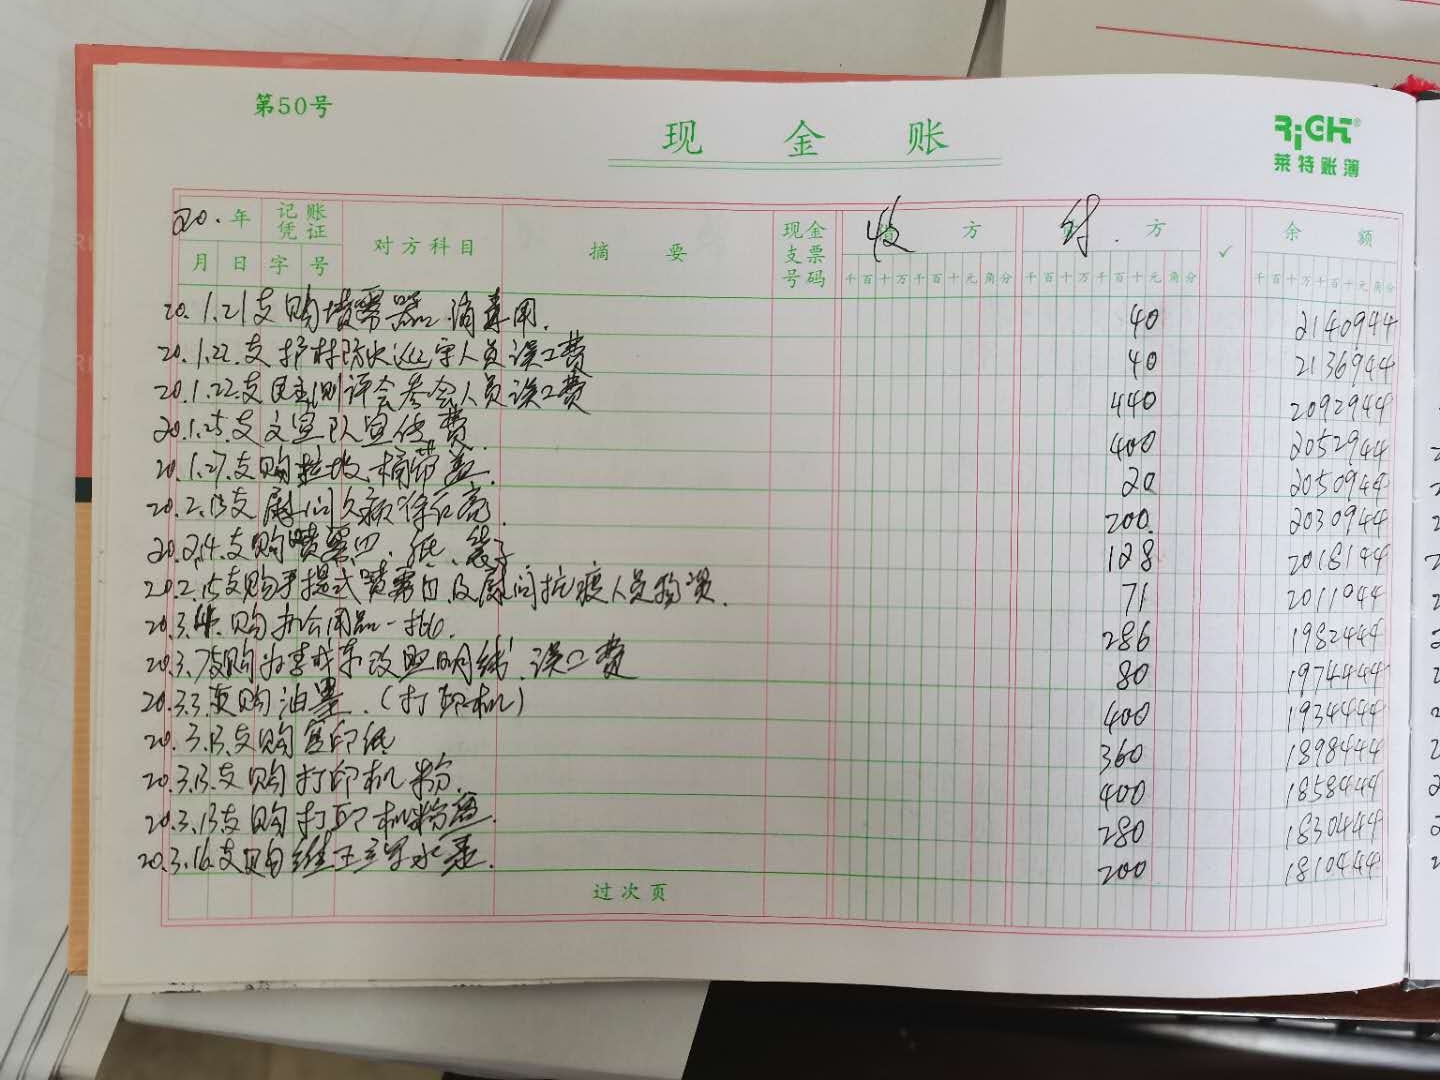 第50号
现 金 账
RiGHT®
莱特账簿
20. 年 记账凭证 对方科目 摘 要 现金支票号码 收 方 付 方 ✓ 余 额
月 日 字 号 千百十万千百十元角分 千百十万千百十元角分 千百十万千百十元角分
20.1.21支购喷雾器 消毒用. 40 2140944
20.1.22.支护林防火巡守人员误工费 40 2136944
20.1.22.支民主测评会参会人员误工费 440 2092944
20.1.25.支文宣队宣传费. 400 2052944
20.1.27.支购垃圾桶带盖. 20 2050944
20.2.13支慰问久病徐 亮. 200. 2030944
20.2.14.支购喷雾 、纸、袋子 128 2018144
20.2.15支购手提式喷雾 及慰问抗疫人员物资. 71 2011044
20.3.4.购办公用品一批. 286 1982444
20.3.7支购 改照明线、误工费 80 1974444
20.3.3.支购油墨.(打印机) 400 1934444
20.3.13.支购复印纸 360 1898444
20.3.13.支购打印机粉. 400 1858444
20.3.13支购打印机粉盒. 280 1830444
20.3.16.支购 水表. 200 1810444
过次页